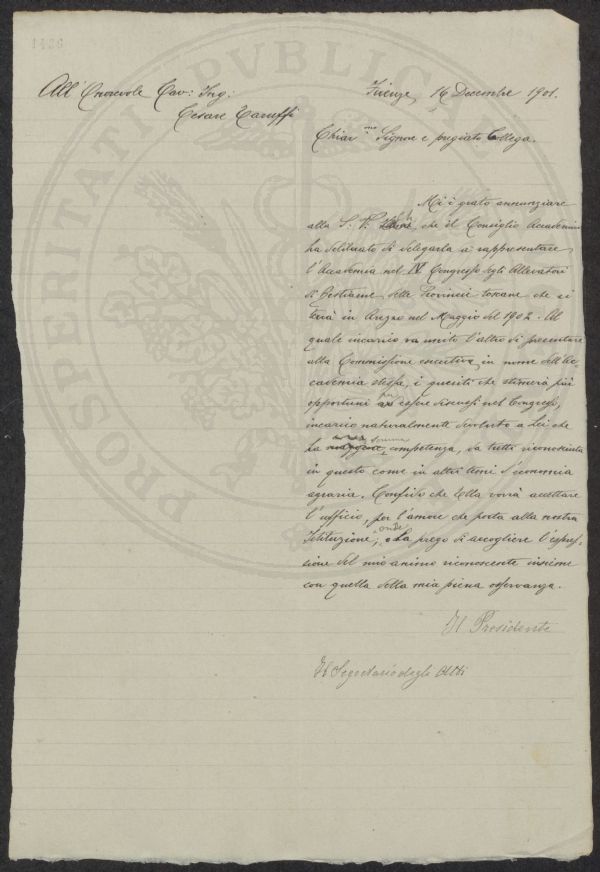 All'Onorevole Cav: Ing:
Cesare Taruffi
Firenze, 16 Decembre 1901.
Chiar.mo Signore e pregiato Collega.
Mi è grato annunziare
alla S. V. che il Consiglio Accademico
ha deliberato di delegarla a rappresentare
l'Accademia nel IV Congresso degli Allevatori
di Bestiame delle Provincie toscane che si
terrà in Arezzo nel Maggio del 1902. Al
quale incarico va unito l'altro di presentare
alla Commissione esecutiva, in nome dell'Ac-
cademia stessa, i quesiti che stimerà più
opportuni essere discussi nel Congresso,
incarico naturalmente devoluto a Lei che
ha competenza, da tutti riconosciuta
in questo come in altri temi d'economia
agraria. Confido che Ella vorrà accettare
l'ufficio, per l'amore che porta alla nostra
Istituzione, onde La prego di accogliere l'espres-
sione del mio animo riconoscente insieme
con quella della mia piena osservanza.
Il Presidente
Il Segretario degli Atti
PRO
VBLIC